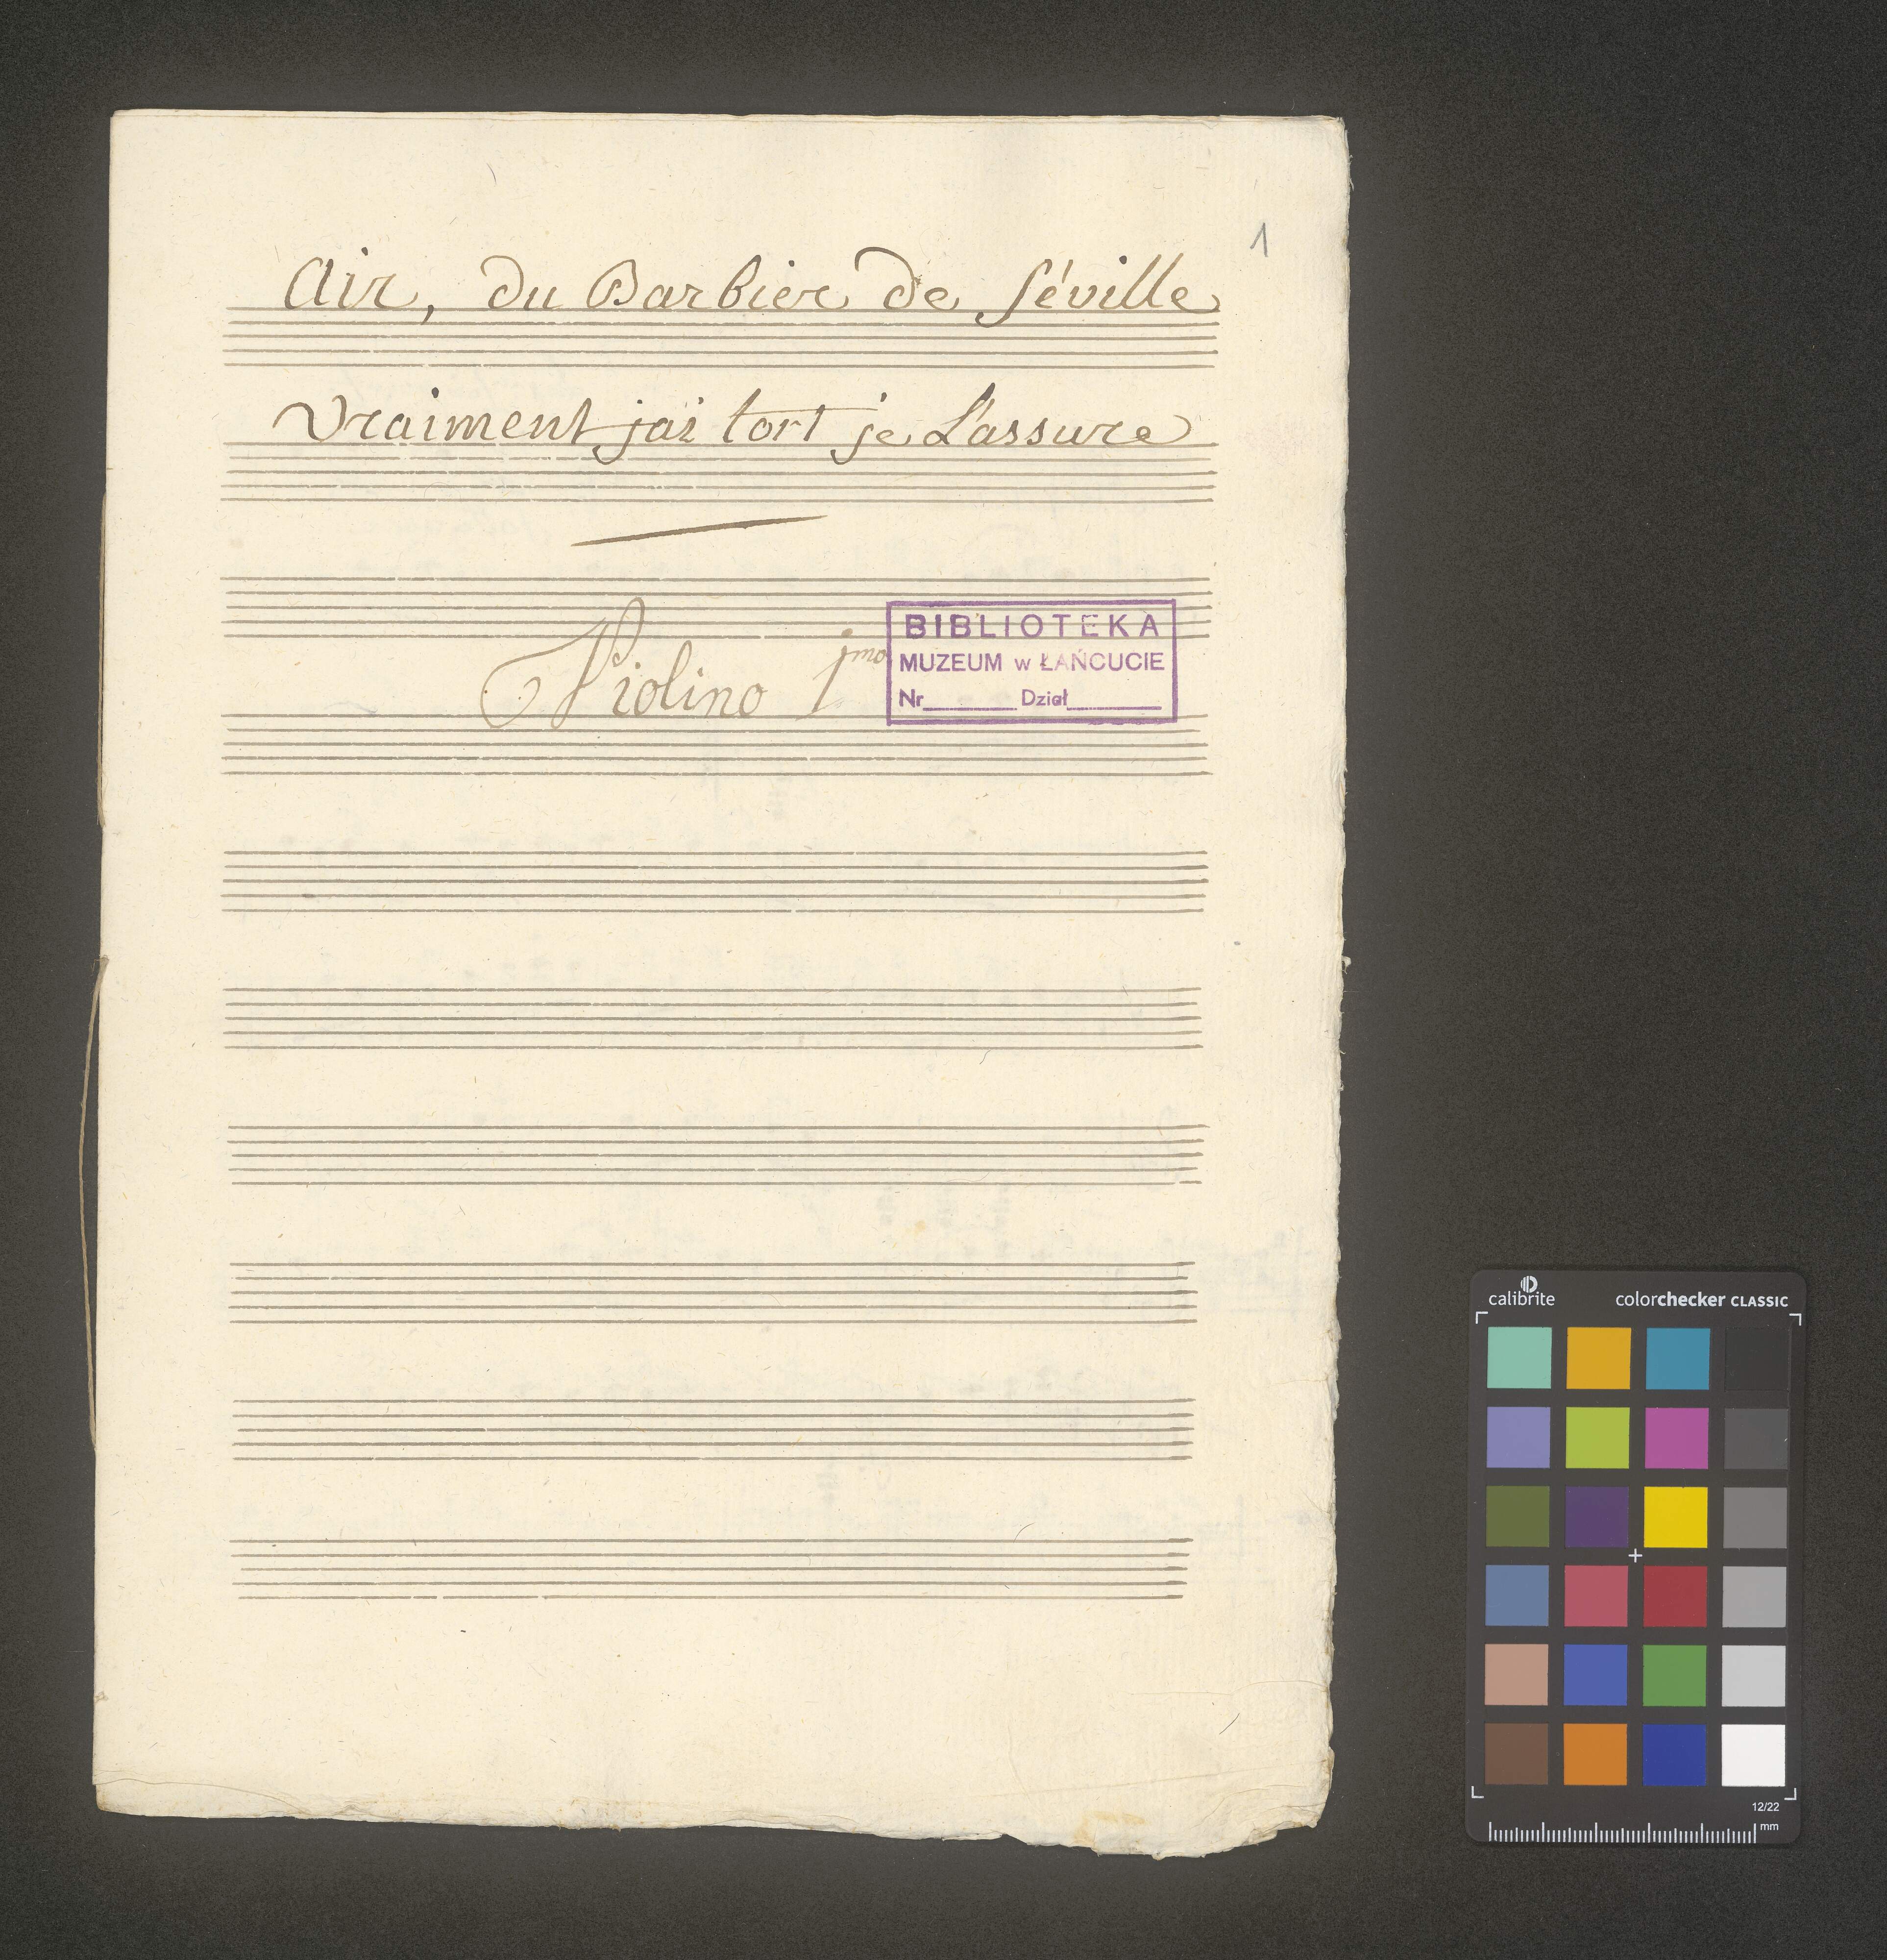 1
Air, du Barbier de Séville
Vraiment jai tort je L'assure
Violino 1mo
BIBLIOTEKA
MUZEUM w ŁAŃCUCIE
Nr________ Dział________
calibrite colorchecker CLASSIC
12/22
mm